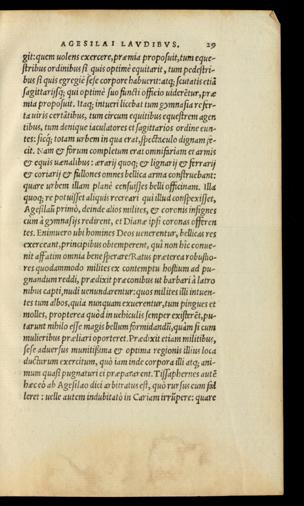 AGESILAI LAVDIBVS. 29
git: quem uolens exercere, præmia proposuit, tum eque-
stribus ordinibus si quis optimè equitarit, tum pedestri-
bus si quis egregiè sese corpore habuerit: atq; scutatis etiã
sagittarijsq; qui optimè suo functi officio uiderẽtur, præ
mia proposuit. Itaq; intueri licebat tum gymnasia refer-
ta uiris certãtibus, tum circum equitibus equestrem agen
tibus, tum denique iaculatores et sagittarios ordine eun-
tes: sicq; totam urbem in qua erat, spectaculo dignam fe-
cit. Nam & forum completum erat omnifariam et armis
& equis uænalibus: ærarij quoq; & lignarij & ferrarij
& coriarij & fullones omnes bellica arma construebant:
quare urbem illam planè censuisses belli officinam. Illa
quoq; re potuisset aliquis recreari qui illud conspexisset,
Agesilaũ primò, deinde alios milites, & coronis insignes
cum à gymnasijs redirent, et Dianæ ipsi coronas offeren
tes. Enimuero ubi homines Deos uenerentur, bellicas res
exerceant, principibus obtemperent, quì non hîc conue-
nit affatim omnia bene sperare? Ratus præterea robustio-
res quodammodo milites ex contemptu hostium ad pu-
gnandum reddi, prædixit præconibus ut barbari à latro
nibus capti, nudi uenundarentur: quos milites illi intuen-
tes tum albos, quia nunquam exuerentur, tum pingues et
molles, propterea quòd in uehiculis semper existerẽt, pu-
tarunt nihilo esse magis bellum formidandũ, quàm si cum
mulieribus præliari oporteret. Prædixit etiam militibus,
sese aduersus munitissima & optima regionis illius loca
ducturum exercitum, quò iam inde corpora illi atq; ani-
mum quasi pugnaturi et præpararent. Tissaphernes autẽ
hæc eò ab Agesilao dici arbitratus est, quò rursus eum fal
leret: uelle autem indubitatò in Cariam irrũpere: quare